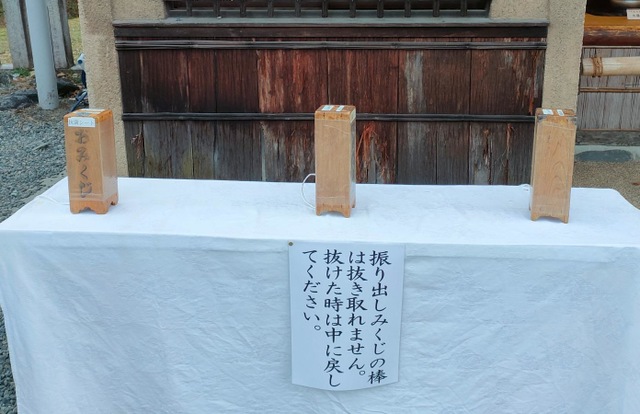 振り出しみくじの棒
は抜き取れません。
抜けた時は中に戻し
てください。
おみくじ